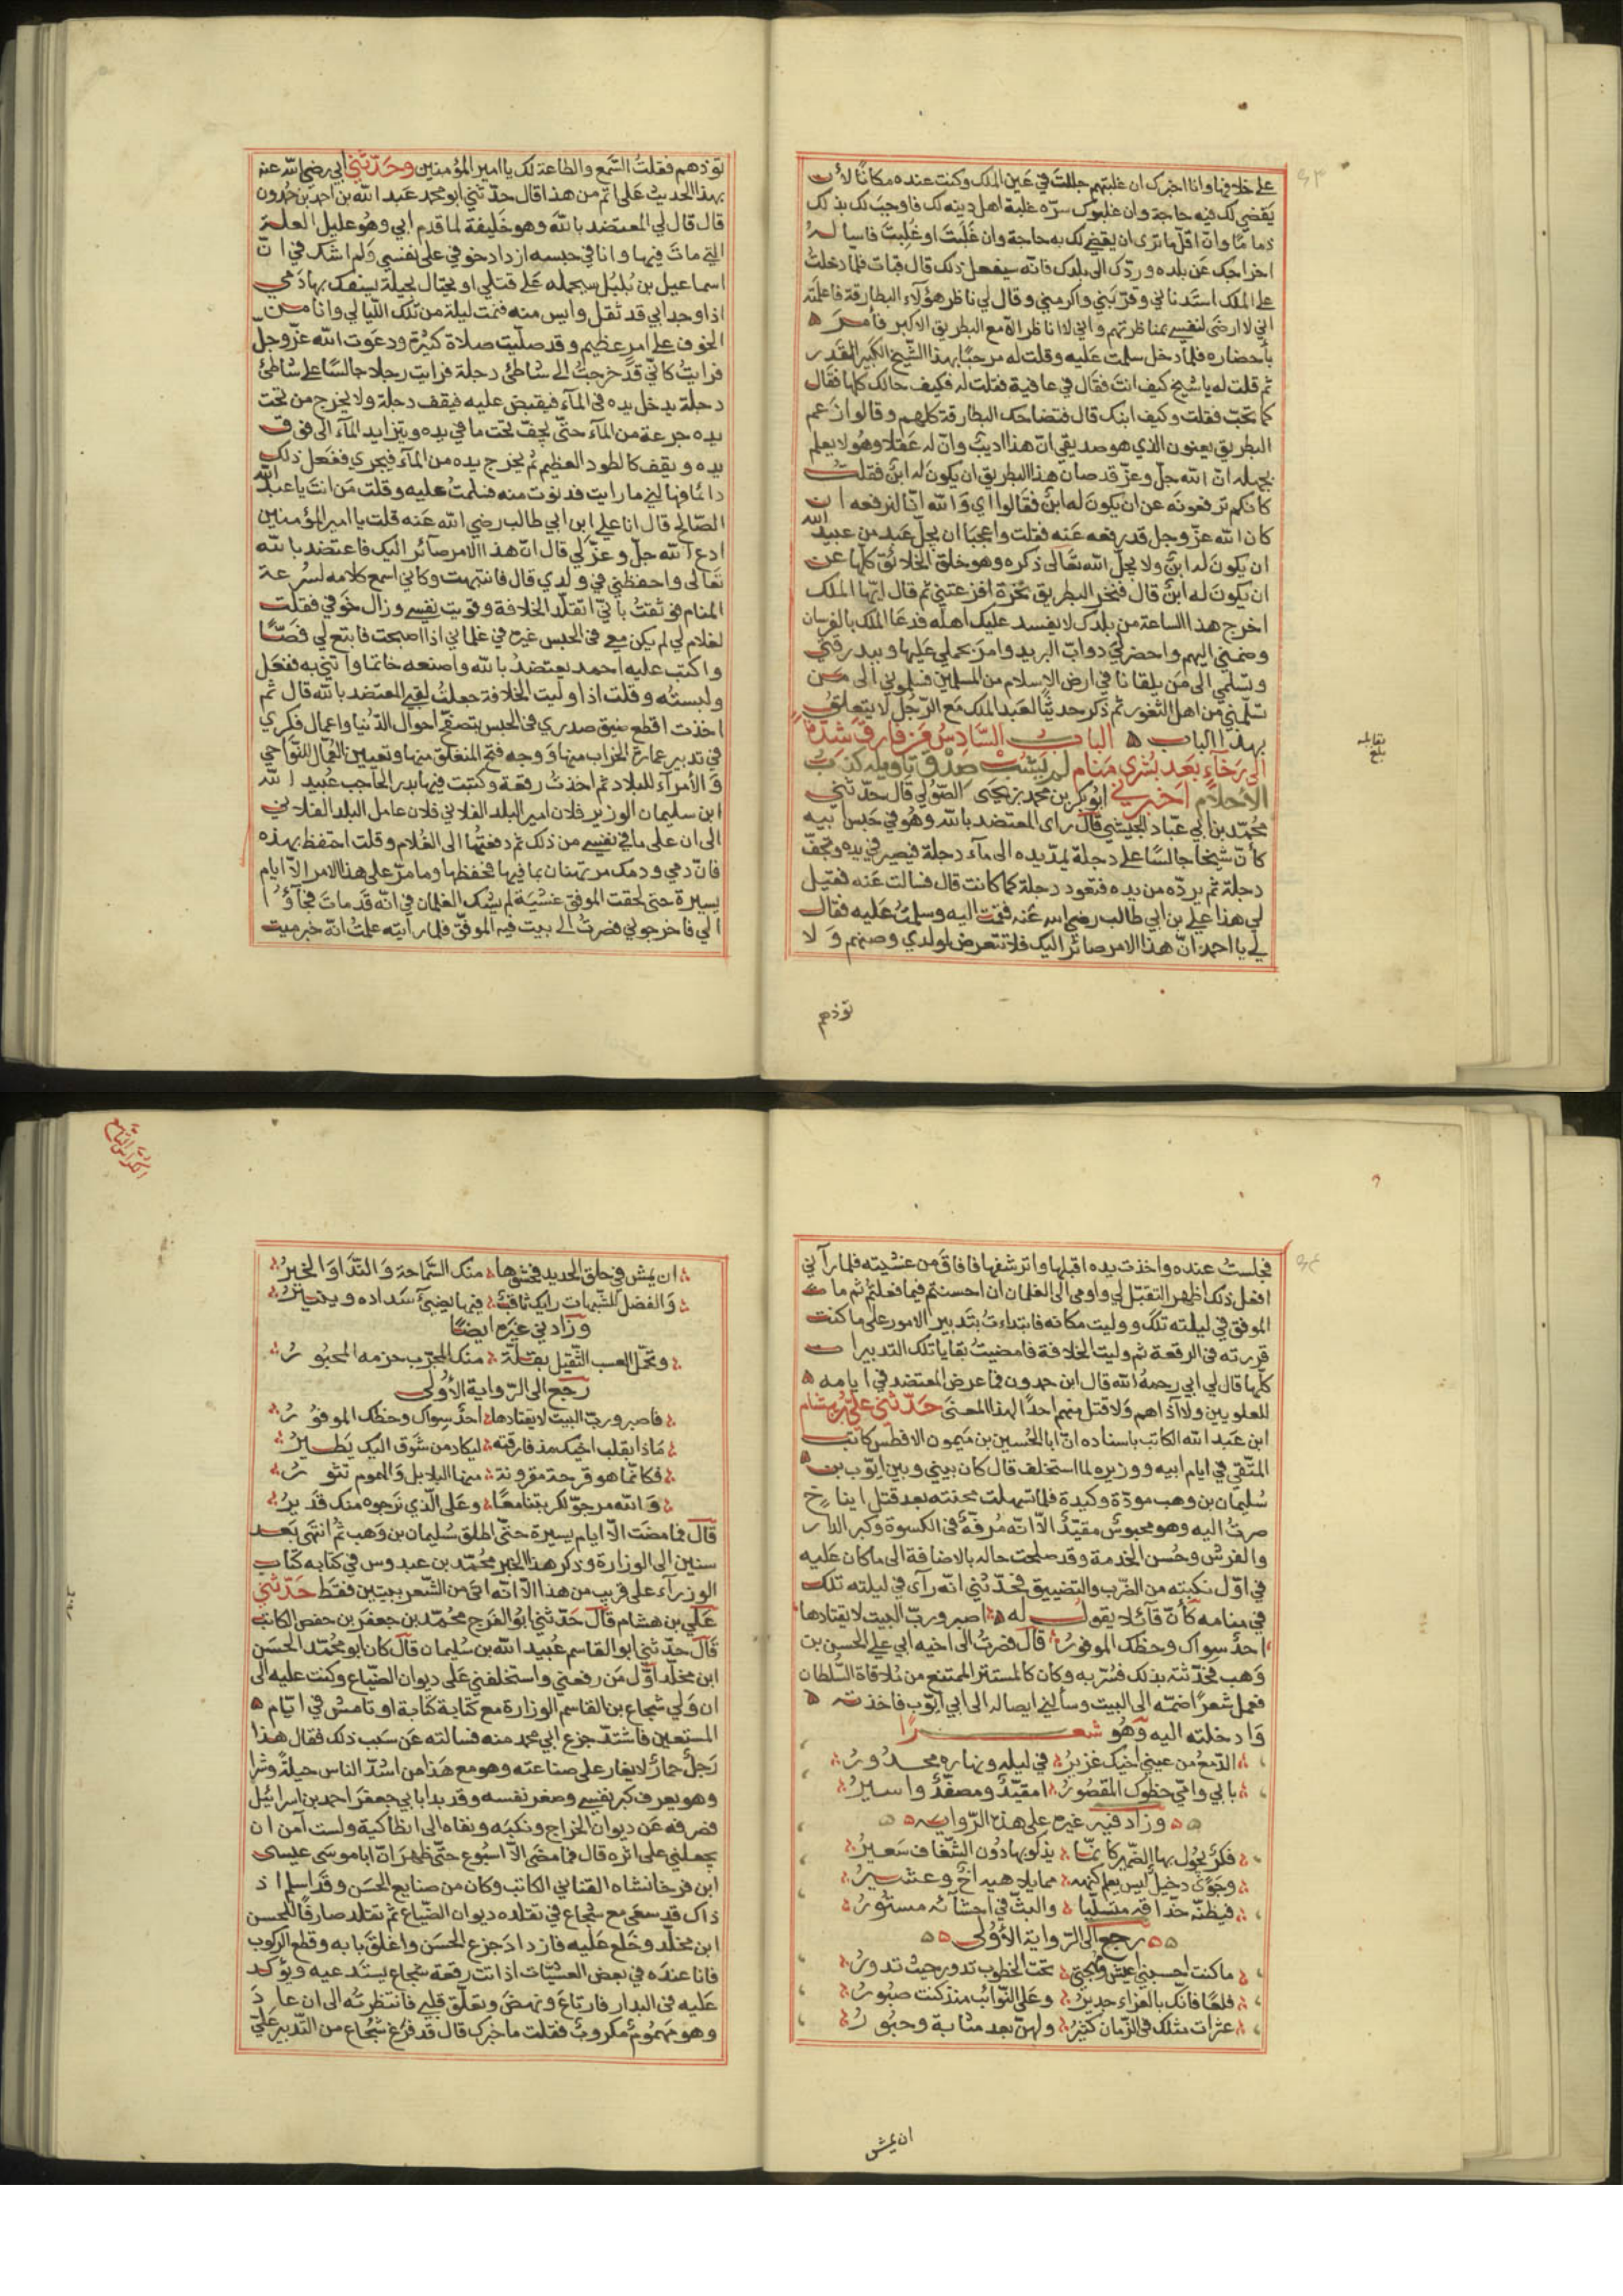 على خلافها وانا اخبرك ان غلبتهم جللت في عين الملك وكنت عنده مكانًا لأن
يقضي لك فيه حاجة وان غلبوك سره غلبة اهل دينه لك فاوجب لك بذلك
ذمامًا وان اقل ما ترى ان يقضي لك به حاجة وان غَلَبت او غُلِبت فاسأله
اخراجك عن بلده وردك الى بلدك فانه سيفعل ذلك قال فبات فلما دخلت
على الملك استدناني وقربني واكرمني وقال لي ناظر هؤلاء البطارقة فاعلمته
اني لا ارضى لنفسي بمناظرتهم واني لا اناظر الا مع البطريق الاكبر فأمر
بأحضاره فلما دخل سلمت عليه وقلت له مرحبًا بهذا الشيخ الكبير القدر
ثم قلت له يا شيخ كيف انت فقال في عافية فقلت له فكيف حالك كلها فقال
كما تحب فقلت وكيف ابنك قال فتضاحك البطارقة كلهم وقالوا زعم
البطريق يعنون الذي هو صديقي ان هذا اديب وان له عقلا وهو لا يعلم
بجهله ان الله جل وعز قد صان هذا البطريق ان يكون له ابن فقلت
كأنكم ترفعونه عن ان يكون له ابن فقالوا اي والله انا لنرفعه ان
كان الله عز وجل قد رفعه عنه فقلت واعجبا ان يجل عبد من عبيد الله
ان يكون له ابن ولا يجل الله تعالى ذكره وهو خلق الخلائق كلها عن
ان يكون له ابن قال فنخر البطريق نخرة افزعتني ثم قال ايها الملك
اخرج هذا الساعة من بلدك لا يفسد عليك اهله فدعا الملك بالفرسان
وضمني اليهم واحضر لي دواب البريد وامر بحملي عليها وببدرقتي
وتسلمي الى من يلقانا في ارض الاسلام من المسلمين فسلموني الى من
تسلمني من اهل الثغور ثم ذكر حديثًا لعبد الملك مع الرجل لا يتعلق
بهذا الباب ٥ الباب السادس فمن فارق شدة
الى رخاء بعد بشرى منام لم يشب صدق تاويله كذب
الاحلام اخبرني ابو بكر بن محمد بن يحيى الصولي قال حدثني
محمد بن ابي عباد الجيشي قال راى المعتضد بالله وهو في حبس ابيه
كأن شيخا جالسًا على دجلة يمد يده الى ماء دجلة فيصير في يده وتجف
دجلة ثم يرده من يده فتعود دجلة كما كانت قال فسالت عنه فقيل
لي هذا علي بن ابي طالب رضي الله عنه فقمت اليه وسلمت عليه فقال
لي يا احمد ان هذا الامر صائر اليك فلا تتعرض لولدي وصنهم ولا
تؤذهم
نقابله
بلغ
تؤذهم فقلت السمع والطاعة لك يا امير المؤمنين وحدثني ابي رضي الله عنه
بهذا الحديث على اتم من هذا قال حدثني ابو محمد عبد الله بن احمد بن حمدون
قال قال لي المعتضد بالله وهو خليفة لما قدم ابي وهو عليل العلة
التي مات فيها وانا في حبسه ازداد خوفي على نفسي ولم اشك في ان
اسماعيل بن بلبل سيحمله على قتلي او يحتال بحيلة يسفك بها دمي
اذا وجد ابي قد ثقل وايس منه فنمت ليلة من تلك الليالي وانا من
الخوف على امر عظيم وقد صليت صلاة كثيرة ودعوت الله عز وجل
فرايت كاني قد خرجت الى شاطئ دجلة فرايت رجلا جالسًا على شاطئ
دجلة يدخل يده في الماء فيقبض عليه فيقف دجلة ولا يخرج من تحت
يده جرعة من الماء حتى يجف تحت ما في يده ويتزايد الماء الى فوق
يده ويقف كالطود العظيم ثم يخرج يده من الماء فيجري ففعل ذلك
دائما فهالني ما رايت فدنوت منه فسلمت عليه وقلت من انت يا عبد الله
الصالح قال انا علي ابن ابي طالب رضي الله عنه قلت يا امير المؤمنين
ادع الله جل وعز لي قال ان هذا الامر صآئر اليك فاعتضد بالله
تعالى واحفظني في ولدي قال فانتبهت وكاني اسمع كلامه لسرعة
المنام فوثقت باني اتقلد الخلافة وقويت نفسي وزال خوفي فقلت
لغلام لي لم يكن معي في الحبس غيره في غلماني اذا اصبحت فابتع لي فصًا
واكتب عليه احمد يعتضد بالله واصنعه خاتما وائتني به ففعل
ولبسته وقلت اذا وليت الخلافة جعلت لقبي المعتضد بالله قال ثم
اخذت اقطع ضيق صدري في الحبس بتصفح احوال الدنيا واعمال فكري
في تدبير عمارة الخراب منها ووجه فتح المنغلق منها وتعيين العمال للنواحي
والأمرآء للبلاد ثم اخذت رقعة وكتبت فيها بدر الحاجب عبيد الله
ابن سليمان الوزير فلان امير البلد الفلاني فلان عامل البلد الفلاني
الى ان على ما في نفسي من ذلك ثم دفعتها الى الغلام وقلت احتفظ بهذه
فان دمي ودمك مرتهنان بما فيها فحفظها وما مر على هذا الامر الا ايام
يسيرة حتى لحقت الموفق غشية لم يشك الغلمان في انه قد مات فجآؤا
الي فاخرجوني فصرت الى بيت فيه الموفق فلما رايته علمت انه خبر ميت
فجلست عنده واخذت يده اقبلها واترشفها فافاق من غشيته فلما رآني
افعل ذلك اظهر التقبل لي واومى الى الغلمان ان احسنتم فيما فعلتم ثم مات
الموفق في ليلته تلك ووليت مكانه فابتداءت بتدبير الامور على ما كنت
قررته في الرقعة ثم وليت الخلافة فامضيت بقايا تلك التدبيرات
كلها قال لي ابي رحمه الله قال ابن حمدون فما عرض المعتضد في ايامه ٥
للعلويين ولا آذاهم ولا قتل منهم احدًا لهذا المعنى حدثني علي بن هشام
ابن عبد الله الكاتب باسناده ان ابا الحسين بن ميمون الافطس كاتب
المتقي في ايام ابيه ووزيره لما استخلف قال كان بيني وبين ايوب بن
سليمان بن وهب مودة وكيدة فلما تسهلت محنته بعد قتل ايناخ
صرت اليه وهو محبوس مقيد الا انه مرفه في الكسوة وكبر الدار
والفرش وحسن الخدمة وقد صلحت حاله بالاضافة الى ما كان عليه
في اول نكبته من الضرب والتضييق فحدثني انه رآى في ليلته تلك
في منامه كأن قآئلا يقول له اصبر ورب البيت لا يقتادها
احد سواك وحظك الموفور قال فصرت الى اخيه ابي علي الحسن بن
وهب فحدثته بذلك فسر به وكان كالمستتر الممتنع من ملاقاة السلطان
فعمل شعرًا ضمنه الى البيت وسألني ايصاله الى ابي ايوب فاخذته ٥
وادخلته اليه وهو شعرًا
الدمع من عيني اخيك غزير في ليله ونهاره محدور
بابي وامي حظوك المقصور امقيد ومصفد واسير
وزاد فيه غيره على هذه الرواية
فكر يجول بها الضمير كانما يذكو بها دون الشغاف سعير
وجوى دخيل ليس يعلم كنهه مما يلاهيه اخ وعشير
فيظنه حذاقه متسليًا والبث في احشآئه مستور
رجع الى الرواية الأولى
ما كنت احسبني اعيش ومهجتي تحت الخطوب تدور حيث تدور
فلعًا فانك بالعزاء جدير وعلى النوائب منذ كنت صبور
عثرات مثلك في الزمان كثير ولهن بعد مثابة وحبور
ان يمش
ان يمش في حلق الحديد فحشوها منك السماحة والندا والخير
والفضل للشبهات رايك ثاقب فيها يضيئ سداده وينير
وزادني غيره ايضًا
وتحمل العبء الثقيل بثقله منك المجرب حزمه المحبور
رجع الى الرواية الأولى
فاصبر ورب البيت لا يقتادها احد سواك وحظك الموفور
ماذا بقلب اخيك مذ فارقته ليكاد من شوق اليك يطير
فكانما هو قرحة مقرونة منها البلابل والهموم تثور
والله مرجو لكربتنا معًا وعلى الذي نرجوه منك قدير
قال فما مضت الا ايام يسيرة حتى اطلق سليمان بن وهب ثم انتهى بعد
سنين الى الوزارة وذكر هذا الخبر محمد بن عبدوس في كتابه كتاب
الوزرآء على قريب من هذا الا انه اتى من الشعر ببيتين فقط حدثني
علي بن هشام قال حدثني ابو الفرج محمد بن جعفر بن حفص الكاتب
قال حدثني ابو القاسم عبيد الله بن سليمان قال كان ابو محمد الحسن
ابن مخلد اول من رفعني واستخلفني على ديوان الضياع وكنت عليه الى
ان ولي شجاع بن القاسم الوزارة مع كتابة كتابة اوتامش في ايام ٥
المستعين فاشتد جزع ابي محمد منه فسالته عن سبب ذلك فقال هذا
رجل حمار لا يغار على صناعته وهو مع هذا من اشد الناس حيلة وشرا
وهو يعرف كبر نفسي وصغر نفسه وقد بدا بابي جعفر احمد بن اسرائيل
فصرفه عن ديوان الخراج ونكبه ونفاه الى انطاكية ولست آمن ان
يجعلني على اثره قال فما مضى الا اسبوع حتى ظهر ان ابا موسى عيسى
ابن فرخانشاه القنابي الكاتب وكان من صنايع الحسن وقد اسلم اذ
ذاك قد سعى مع شجاع في تقلده ديوان الضياع ثم تقلد صارفًا للحسن
ابن مخلد وخلع عليه فازداد جزع الحسن واغلق بابه وقطع الركوب
فانا عنده في بعض العشيات اذ اتت رقعة شجاع يستدعيه ويؤكد
عليه في البدار فارتاع ونهض وتعلق قلبي فانتظرته الى ان عاد
وهو مهموم مكروب فقلت ما خبرك قال قد فرغ شجاع من التدبير علي